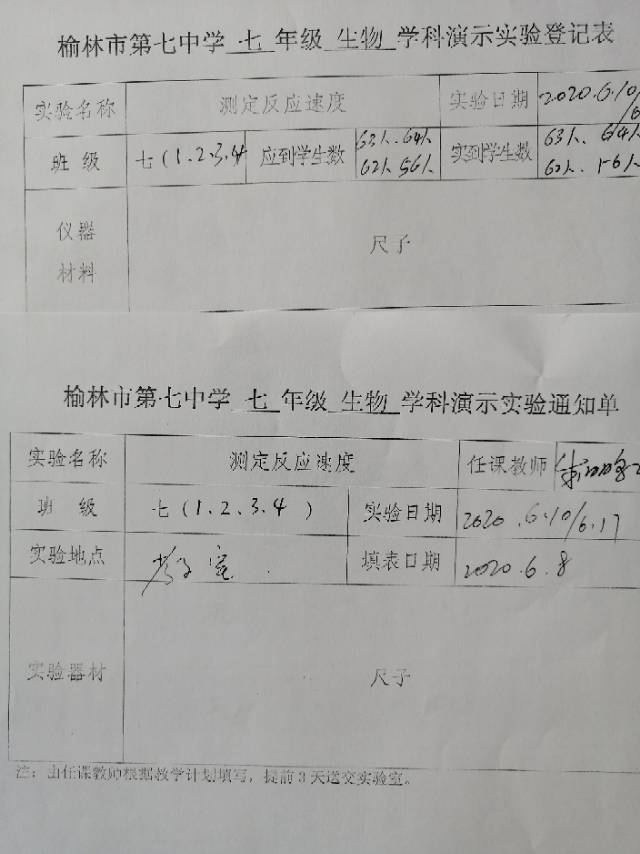 榆林市第七中学 七 年级 生物 学科演示实验登记表
实验名称 测定反应速度 实验日期 2020.6.10/6
班 级 七(1.2.3.4 应到学生数 63人.64人 62人56人 实到学生数 63人.64人 62人.56人
仪器
材料
尺子
榆林市第七中学 七 年级 生物 学科演示实验通知单
实验名称 测定反应速度 任课教师
班 级 七(1、2、3、4) 实验日期 2020.6.10/6.17
实验地点 教室 填表日期 2020.6.8
实验器材 尺子
注：由任课教师根据教学计划填写，提前3天送交实验室。